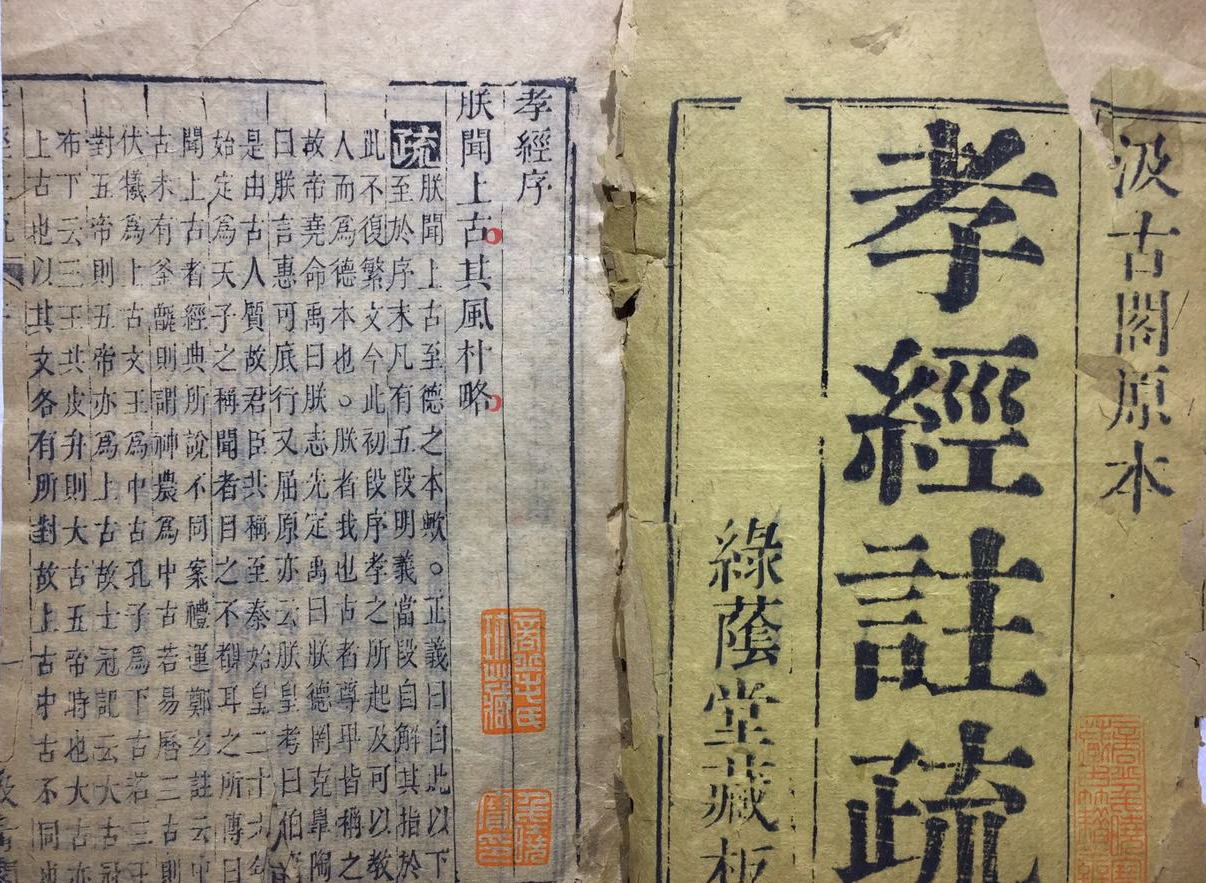 汲古閣原本
孝經註疏
綠蔭堂藏板
孝經序
朕聞上古其風朴略
疏
朕聞上古至德之本歟○正義曰自此以下
至於序末凡有五段明義當段自解其指於
此不復繁文今此初段序孝之所起及可以教
人而為德本也○朕者我也古者尊卑皆稱之
故帝堯命禹曰朕志先定禹曰朕德罔克皐陶
曰朕言惠可底行又屈原亦云朕皇考曰伯
是由古人質故君臣共稱至秦始皇二十六年
始定為天子之稱聞者目之不覩耳之所傳曰
聞上古者經典所說不同案禮運鄭玄註云中
古未有釜甑則謂神農為中古若易曆三古則
伏犧為上古文王為中古孔子為下古若三王
對五帝則五帝亦為上古故士冠記云大古冠
布下云三王共皮弁則大古五帝時也大古亦
上古也以其文各有所對故上古中古不同也